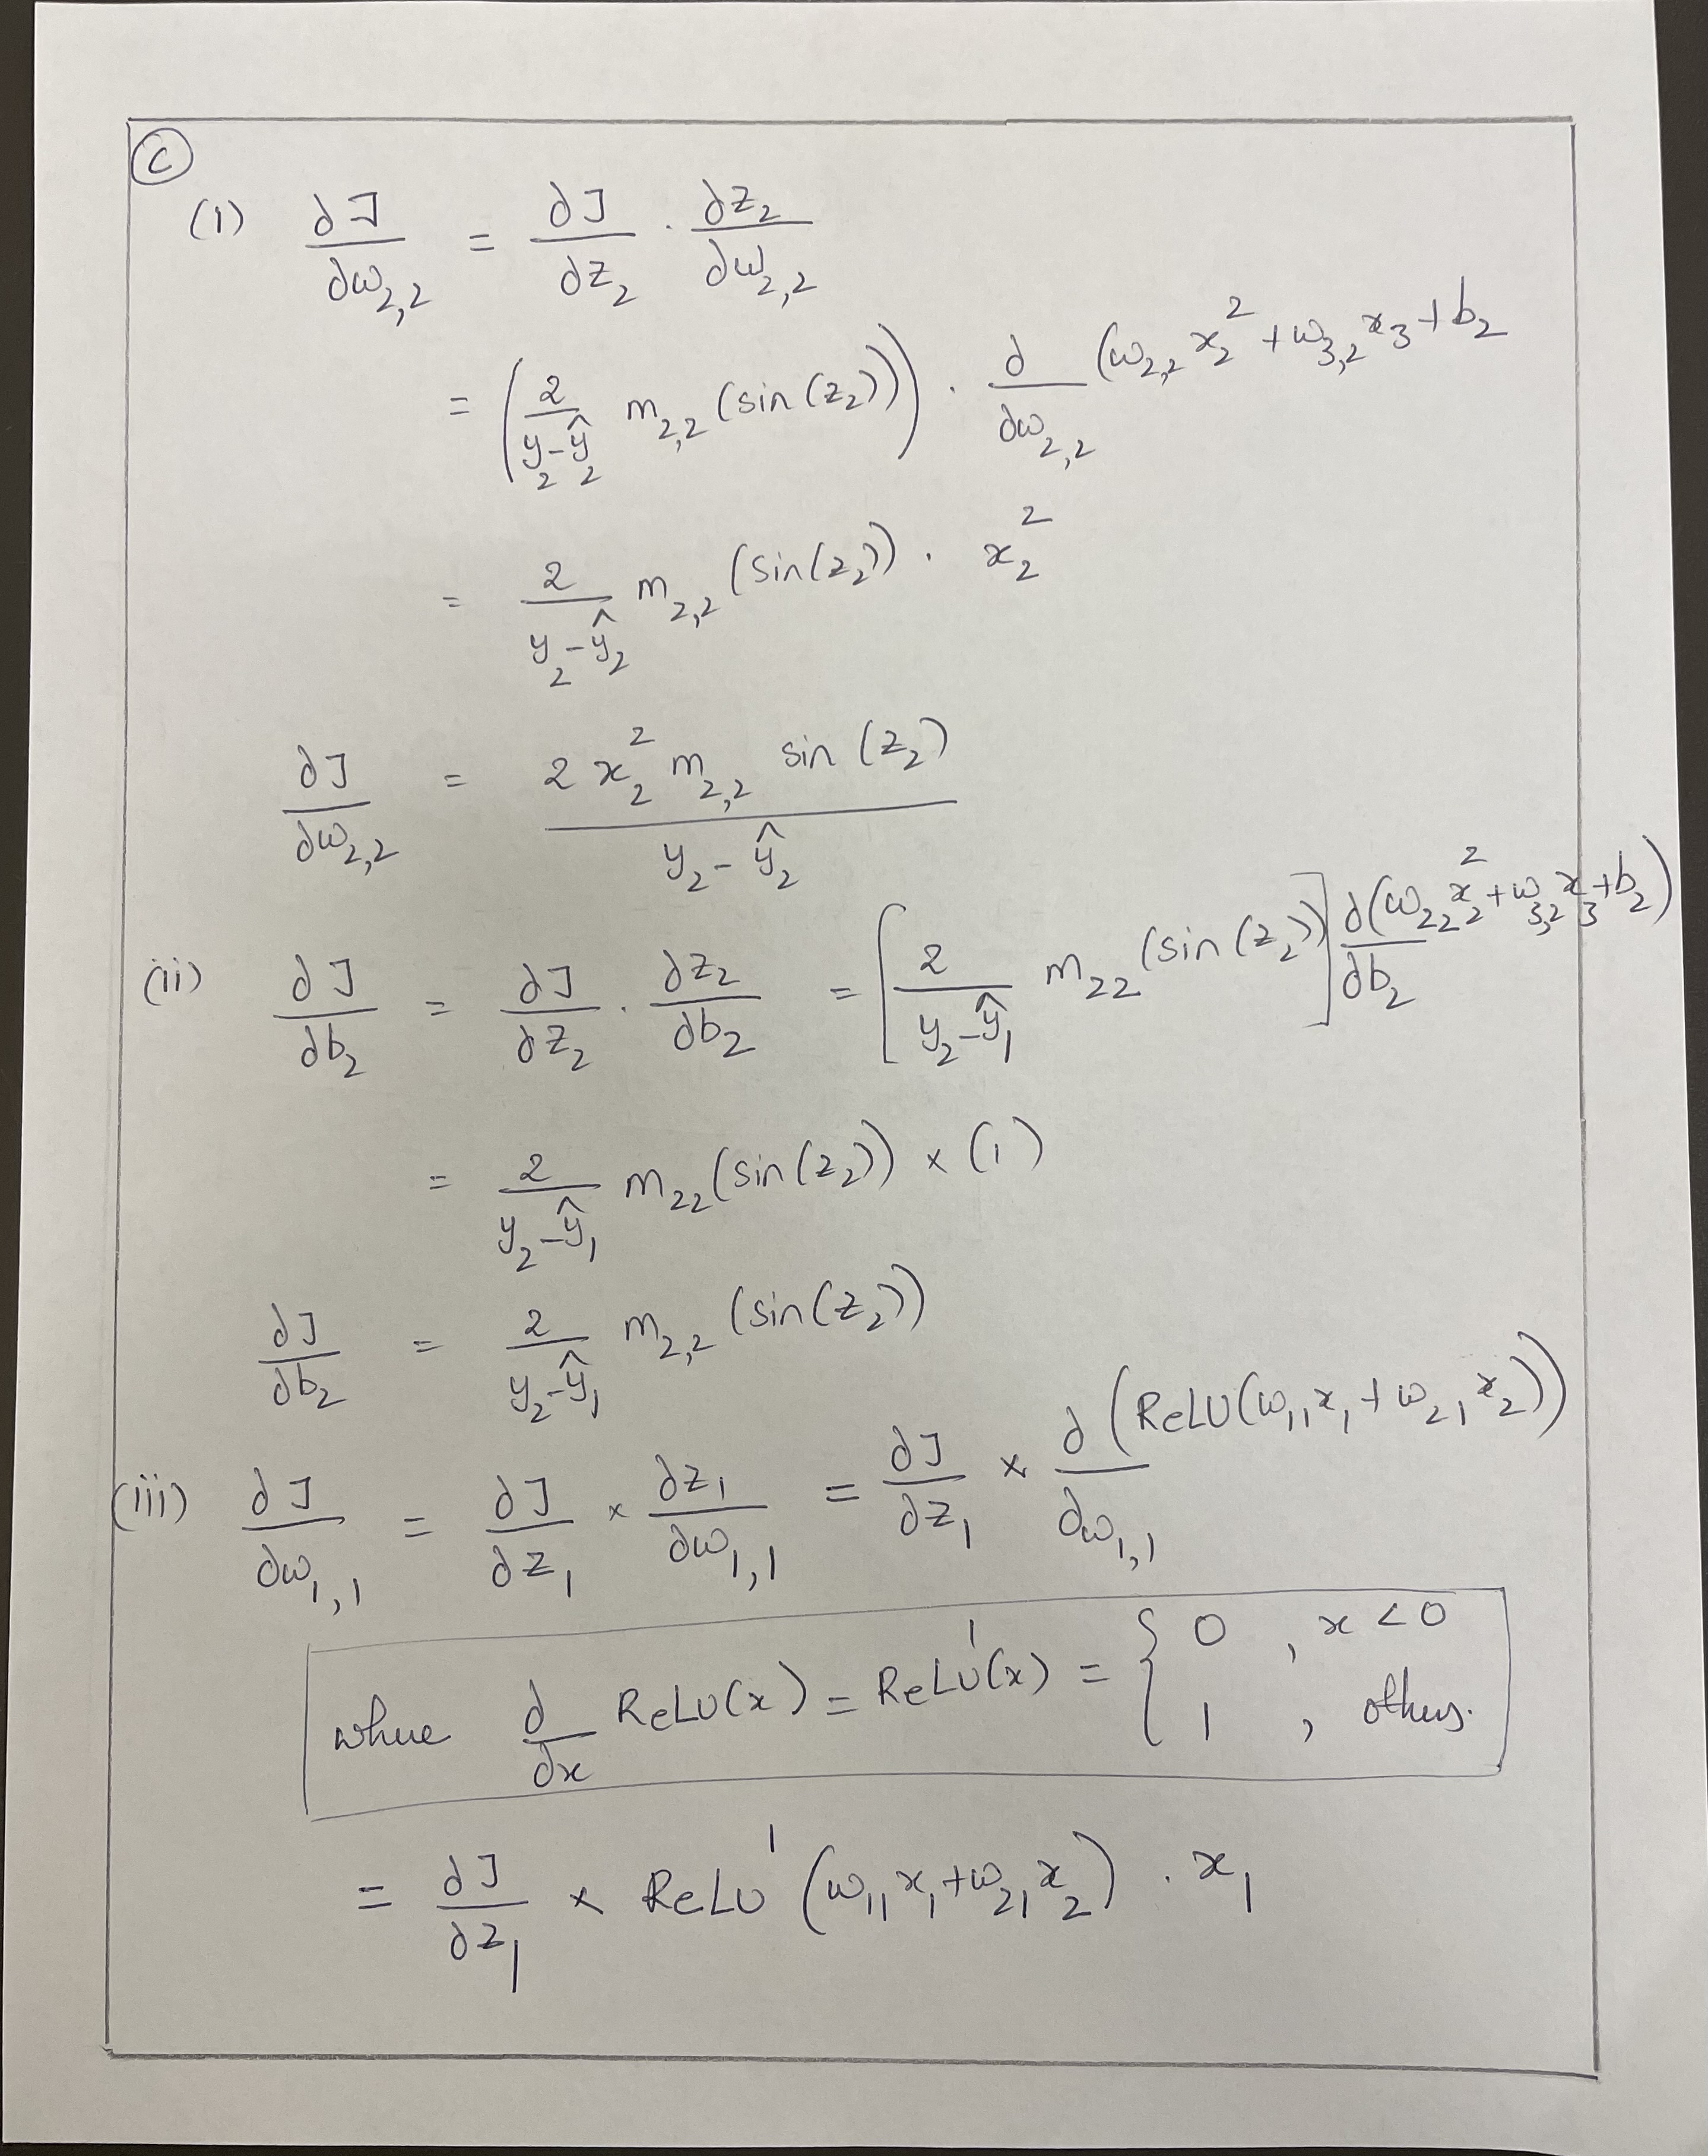 (c)
(i) ∂J/∂w₂,₂ = ∂J/∂z₂ · ∂z₂/∂w₂,₂
= (2/(y₂-ŷ₂) m₂,₂ (sin(z₂))) · ∂/∂w₂,₂ (w₂,₂ x₂² + w₃,₂ x₃ + b₂
= 2/(y₂-ŷ₂) m₂,₂ (sin(z₂)) · x₂²
∂J/∂w₂,₂ = 2 x₂² m₂,₂ sin (z₂) / (y₂ - ŷ₂)
(ii) ∂J/∂b₂ = ∂J/∂z₂ · ∂z₂/∂b₂ = [2/(y₂-ŷ₁) m₂₂ (sin(z₂))] ∂(w₂₂ x₂² + w₃,₂ x₃ + b₂)/∂b₂
= 2/(y₂-ŷ₁) m₂₂ (sin(z₂)) × (1)
∂J/∂b₂ = 2/(y₂-ŷ₁) m₂,₂ (sin(z₂))
(iii) ∂J/∂w₁,₁ = ∂J/∂z₁ × ∂z₁/∂w₁,₁ = ∂J/∂z₁ × ∂/∂w₁,₁ (ReLU(w₁₁ x₁ + w₂₁ x₂))
where ∂/∂x ReLU(x) = ReLU'(x) = { 0 , x < 0
1 , others.
= ∂J/∂z₁ × ReLU' (w₁₁ x₁ + w₂₁ x₂) · x₁